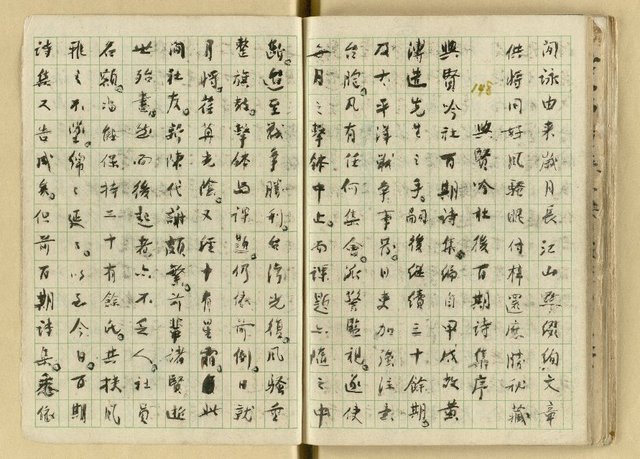 閒詠由來歲月長江山點綴絢文章
供將同好風騷眼付梓還應勝秘藏
148 興賢吟社後百期詩集序
興賢吟社百期詩集編自甲戌故黃
溥造先生之手。嗣後繼續三十餘期。
及太平洋戰爭事發日吏加強注意
台胞。凡有任何集會嚴警監視。遂使
每月之擊鉢中止。而課題亦隨之中
斷。迨至戰爭勝利。台灣光復。風騷重
整旗鼓。擊鉢與課題仍依前例。日就
月將。荏苒光陰。又經十有星霜。此
間社友。新陳代謝頗繁。前輩諸賢逝
世殆盡。然而後起者亦不乏人。社員
名額。尚能保持二十有餘氏。共扶風
雅之不墜。綿々延々以至今日。百期
詩集又告成矣。但前百期詩集。悉依